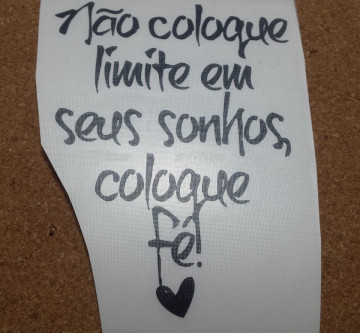 Não coloque
limite em
seus sonhos,
coloque
fé!